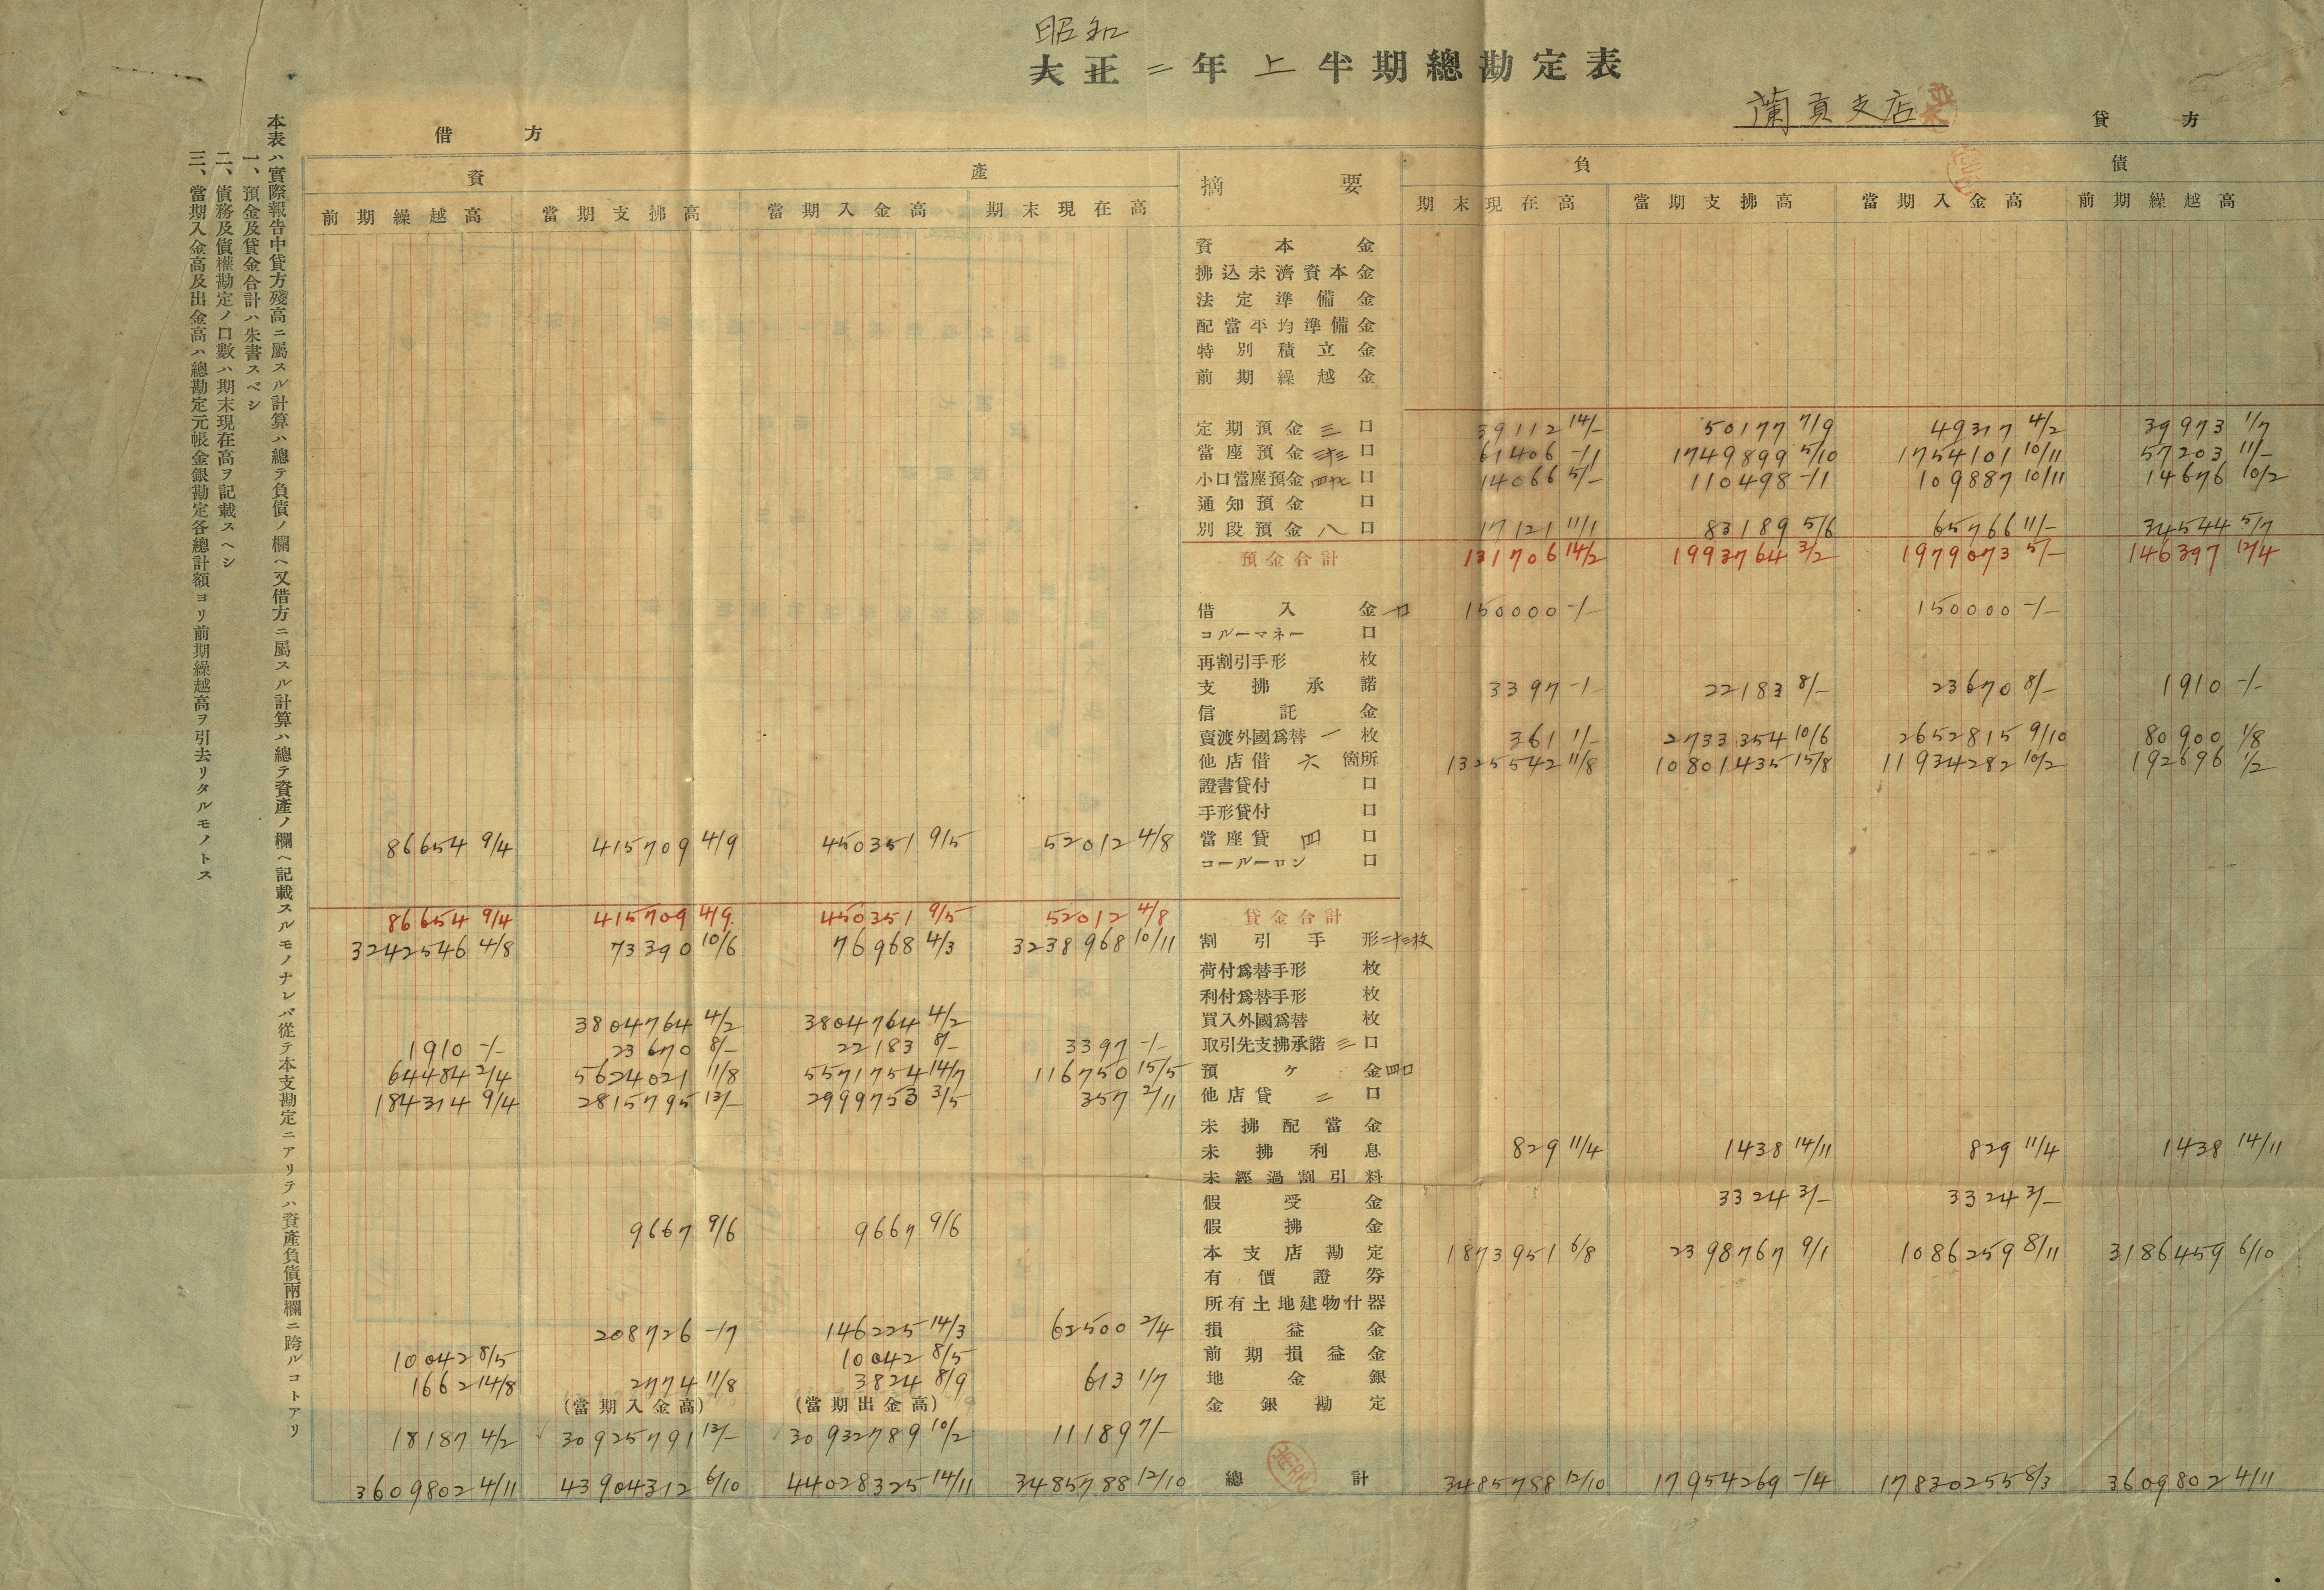 昭和
大正二年上半期總勘定表
蘭貢支店
借方
貸方
資產
摘要
負債
前期繰越高 當期支拂高 當期入金高 期末現在高 期末現在高 當期支拂高 當期入金高 前期繰越高
資本金
拂込未濟資本金
法定準備金
配當平均準備金
特別積立金
前期繰越金
定期預金 三 口 39112 14/- 50177 7/9 49317 4/2 39973 1/7
當座預金 三十三 口 61406 -/1 1749899 5/10 1754101 10/11 57203 11/-
小口當座預金 四十七 口 14066 5/- 110498 -/1 109887 10/11 14676 10/2
通知預金 口
別段預金 八 口 17121 11/1 83189 5/6 65766 11/- 34544 5/7
預金合計 131706 14/2 1993764 3/2 1979073 5/- 146397 12/4
借入金 一口 150000 -/- 150000 -/-
コルーマネー 口
再割引手形 枚
支拂承諾 3397 -/- 22183 8/- 23670 8/- 1910 -/-
信託金
賣渡外國爲替 一 枚 361 1/- 2733354 10/6 2652815 9/10 80900 1/8
他店借 六 箇所 1325542 11/8 10801435 15/8 11934282 10/2 192696 1/2
證書貸付 口
手形貸付 口
86654 9/4 415709 4/9 450351 9/5 52012 4/8 當座貸 四 口
コールーロン 口
86654 9/4 415709 4/9 450351 9/5 52012 4/8 貸金合計
3242546 4/8 73390 10/6 76968 4/3 3238968 10/11 割引手形 二十三枚
荷付爲替手形 枚
利付爲替手形 枚
3804764 4/2 3804764 4/2 買入外國爲替 枚
1910 -/- 23670 8/- 22183 8/- 3397 -/- 取引先支拂承諾 三 口
64484 2/4 5624021 11/8 5571754 14/7 116750 15/5 預ケ金 四口
184314 9/4 2815795 13/- 2999753 3/5 357 2/11 他店貸 二 口
未拂配當金
未拂利息 829 11/4 1438 14/11 829 11/4 1438 14/11
未經過割引料
假受金 3324 3/- 3324 3/-
9667 9/6 9667 9/6 假拂金
本支店勘定 1873951 6/8 2398767 9/1 1086259 8/11 3186459 6/10
有價證券
所有土地建物什器
208726 -/7 146225 14/3 62500 2/4 損益金
10042 8/5 10042 8/5 前期損益金
1662 14/8 2774 11/8 3824 8/9 613 1/7 地金銀
(當期入金高) (當期出金高) 金銀勘定
18187 4/2 30925791 13/- 30932789 10/2 11189 7/-
3609802 4/11 43904312 6/10 44028325 14/11 3485788 12/10 總計 3485788 12/10 17954269 -/4 17830255 8/3 3609802 4/11
本表ハ實際報告中貸方殘高ニ屬スル計算ハ總テ負債ノ欄ヘ又借方ニ屬スル計算ハ總テ資產ノ欄ヘ記載スルモノナレバ從テ本支勘定ニアリテハ資產負債兩欄ニ跨ルコトアリ
一、預金及貸金合計ハ朱書スベシ
二、債務及債權勘定ノ口數ハ期末現在高ヲ記載スヘシ
三、當期入金高及出金高ハ總勘定元帳金銀勘定各總計額ヨリ前期繰越高ヲ引去リタルモノトス